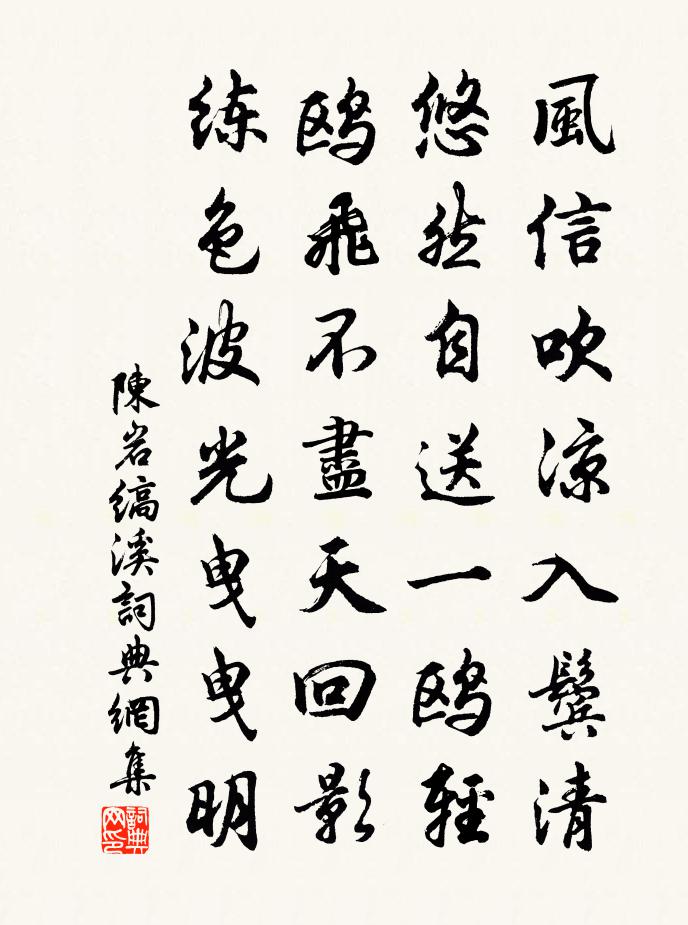 風信吹凉入鬓清
悠然自送一鸥輕
鸥飛不盡天回影
练色波光曳曳明
陳岩缟溪詞典網集
詞典网印